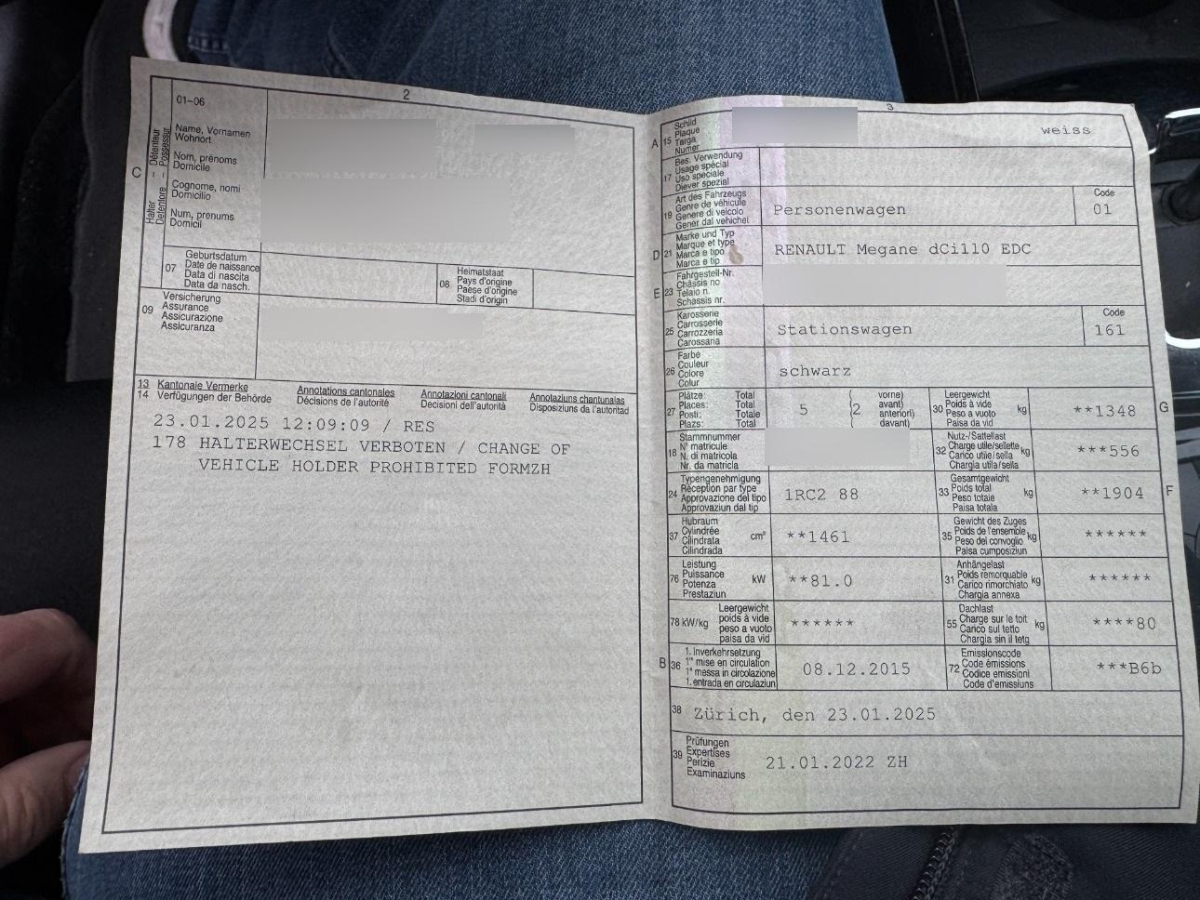 2
01-06
C
Halter – Détenteur
Detentore – Possessur
Name, Vornamen
Wohnort
Nom, prénoms
Domicile
Cognome, nomi
Domicilio
Num, prenums
Domicil
07
Geburtsdatum
Date de naissance
Data di nascita
Data da nasch.
08
Heimatstaat
Pays d'origine
Paese d'origine
Stadi d'origin
09
Versicherung
Assurance
Assicurazione
Assicuranza
13 Kantonale Vermerke Annotations cantonales Annotazioni cantonali Annotaziuns chantunalas
14 Verfügungen der Behörde Décisions de l'autorité Decisioni dell'autorità Disposiziuns da l'autoritad
23.01.2025 12:09:09 / RES
178 HALTERWECHSEL VERBOTEN / CHANGE OF
VEHICLE HOLDER PROHIBITED FORMZH
3
A 15
Schild
Plaque
Targa
Numer
weiss
17
Bes. Verwendung
Usage spécial
Uso speciale
Diever spezial
19
Art des Fahrzeugs
Genre de véhicule
Genere di veicolo
Gener dal vehichel
Personenwagen
Code
01
D 21
Marke und Typ
Marque et type
Marca e tipo
Marca e tip
RENAULT Megane dCi110 EDC
E 23
Fahrgestell-Nr.
Châssis no
Telaio n.
Schassis nr.
25
Karosserie
Carrosserie
Carrozzeria
Carossaria
Stationswagen
Code
161
26
Farbe
Couleur
Colore
Colur
schwarz
27
Plätze: Total
Places: Total
Posti: Totale
Plazs: Total
5
(2
vorne)
avant)
anteriori)
davant)
30
Leergewicht
Poids à vide
Peso a vuoto
Paisa da vid
kg
**1348
G
18
Stammnummer
N° matricule
N. di matricola
Nr. da matricla
32
Nutz-/Sattellast
Charge utile/sellette
Carico utile/sella
Chargia utila/sella
kg
***556
24
Typengenehmigung
Réception par type
Approvazione del tipo
Approvaziun dal tip
1RC2 88
33
Gesamtgewicht
Poids total
Peso totale
Paisa totala
kg
**1904
F
37
Hubraum
Cylindrée
Cilindrata
Cilindrada
cm³
**1461
35
Gewicht des Zuges
Poids de l'ensemble
Peso del convoglio
Paisa cumposiziun
kg
******
76
Leistung
Puissance
Potenza
Prestaziun
kW
**81.0
31
Anhängelast
Poids remorquable
Carico rimorchiato
Chargia annexa
kg
******
78 kW/kg
Leergewicht
poids à vide
peso a vuoto
paisa da vid
******
55
Dachlast
Charge sur le toit
Carico sul tetto
Chargia sin il tetg
kg
****80
B 36
1. Inverkehrsetzung
1re mise en circulation
1a messa in circolazione
1. entrada en circulaziun
08.12.2015
72
Emissionscode
Code émissions
Codice emissioni
Code d'emissiuns
***B6b
38 Zürich, den 23.01.2025
39
Prüfungen
Expertises
Perizie
Examinaziuns
21.01.2022 ZH